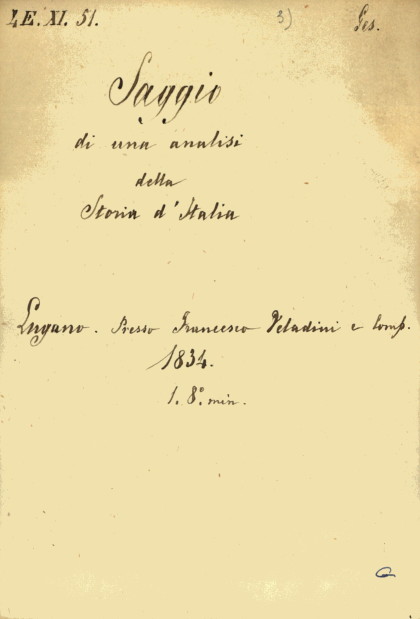 4E. XI. 51.
3)
Ges.
Saggio
di una analisi
della
Storia d'Italia
Lugano. Presso Francesco Veladini e Comp.
1834.
1. 8° min.